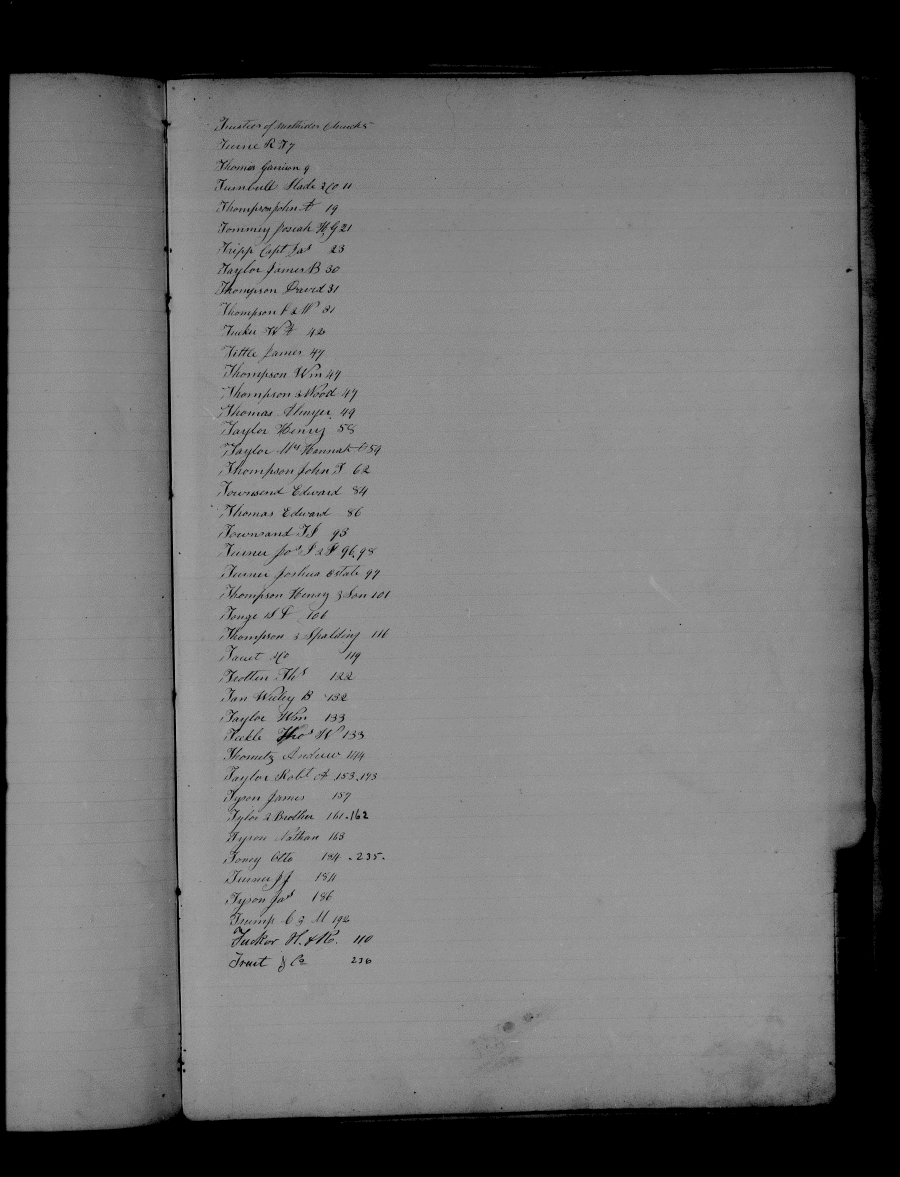 Trustees of Methodis Church 5
R F 7
Thomas Garrison 9
Turnbull Slade & Co 11
Thompson John A 19
Tommey Josiah H G 21
Tripp Capt Jas 23
Taylor James B 30
Thompson David 31
Thompson & W 81
Tucker W F 42
Tittle James 47
Thompson Wm 49
Thompson & Wood 49
Thomas 49
Taylor Henry 58
Taylor Mrs Hannah C 59
Thompson John T 62
Townsend Edward 84
Thomas Edward 86
Townsand T J 93
Turner Jos & 96,98
Turner Joshua Estate 99
Thompson Henry & Son 101
Tonge S 106
Thompson & Spalding 116
& Co 119
Trotten Ths 122
Tan Wesley B 132
Taylor Wm 133
Tickle Thos W 133
Andrew 144
Taylor Robt A 153,143
Tyson James 159
Tylor & Brother 161.162
Tyson Nathan 163
Toney Otto 184.235.
Turner J J 184
Tyson Jas 186
Trump C & M 192
Tucker H. & R. 110
Truit & Co 236